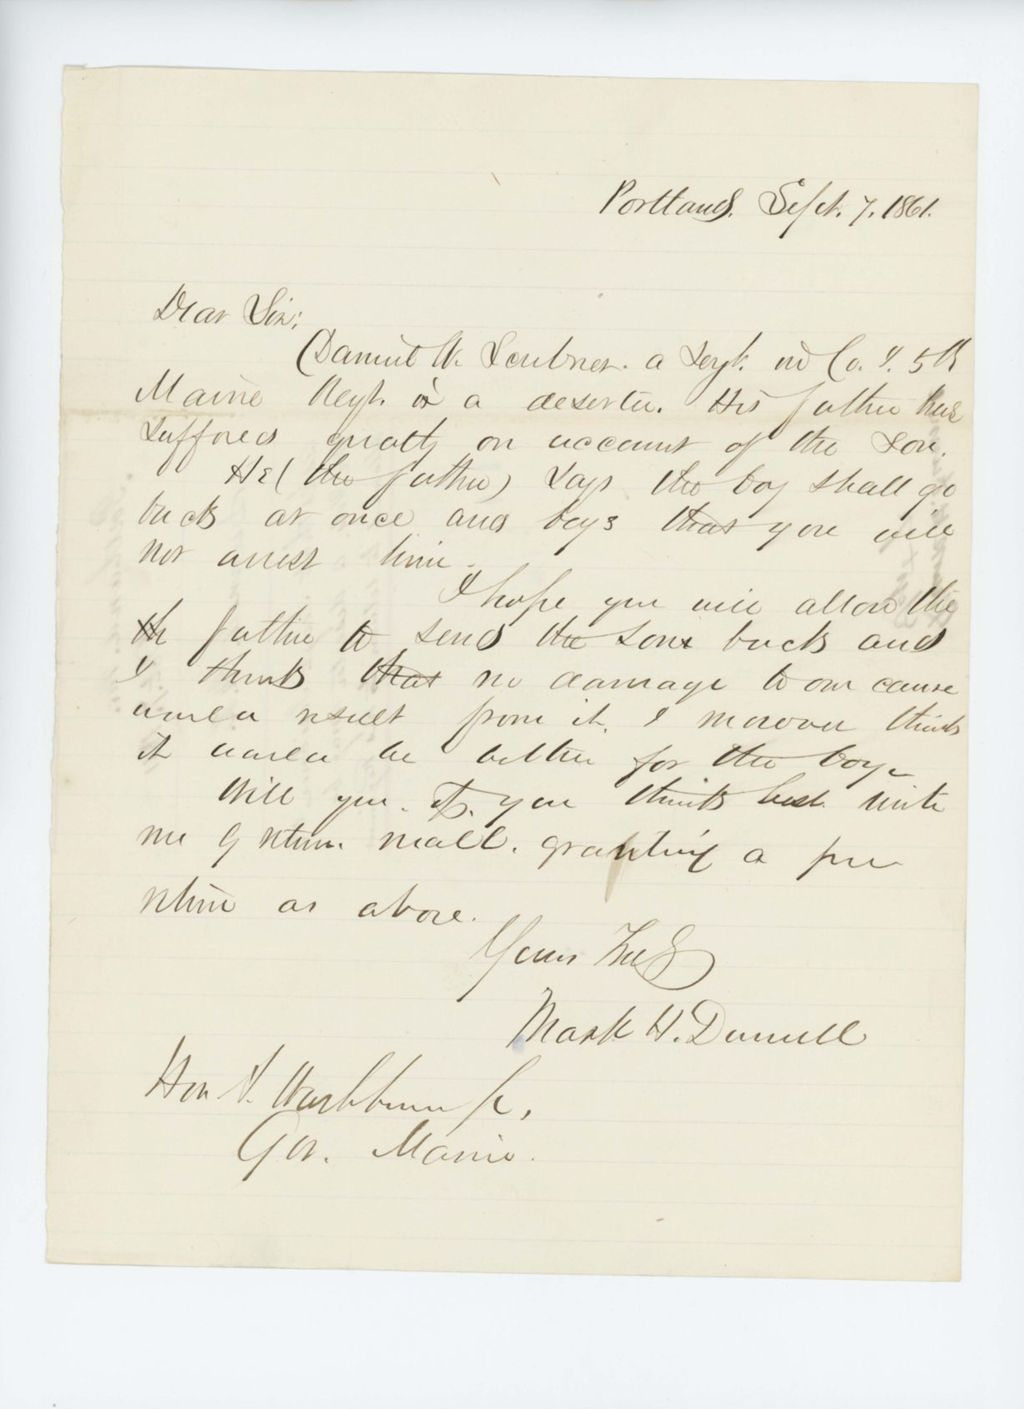 Portland. Sept. 7. 1861.
Dear Sir:
Daniel W. Scribner. a Sergt. in Co. I. 5th
Maine Regt. is a deserter. His father has
suffered greatly on account of the son.
He (the father) says the boy shall go
back at once and begs that you will
not arrest him.
I hope you will allow the
th father to send the son back and
I think that no damage to our cause
would result from it. I moreover think
it would be better for the boy.
Will you. if. you think best. write
me by return mail. granting a free
return as above.
Yours Truly
Mark H. Dunnell
Hon I. Washburn Jr,
Gov. Maine.